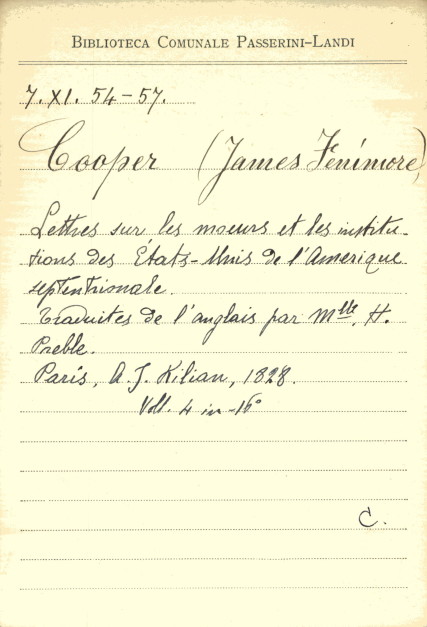 BIBLIOTECA COMUNALE PASSERINI-LANDI
7. XI. 54-57.
Cooper (James Fenimore)
Lettres sur les moeurs et les institu-
tions des États-Unis de l'Amerique
septentrionale.
Traduites de l'anglais par Mlle. H.
Preble.
Paris, A. J. Kilian, 1828.
Voll. 4 in-16°
C.